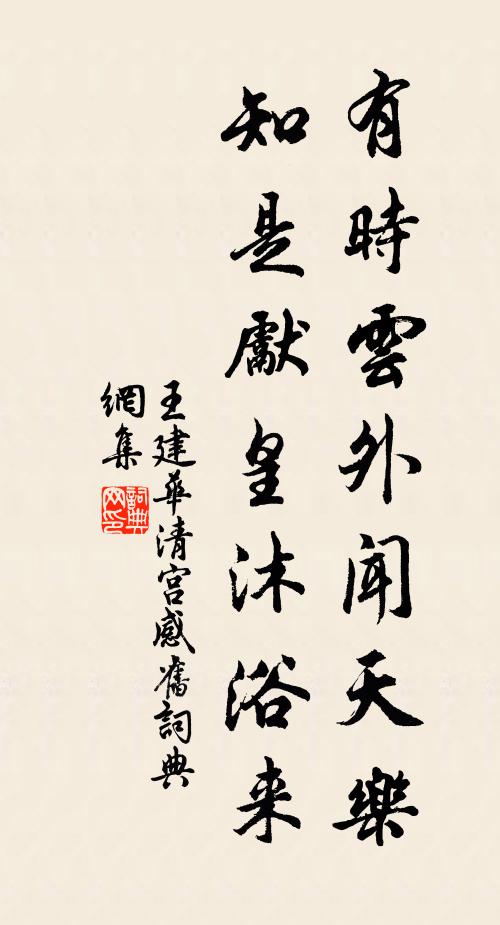 有時雲外聞天樂
知是獻皇沐浴来
王建華清宮感舊詞典
網集
詞典
网印